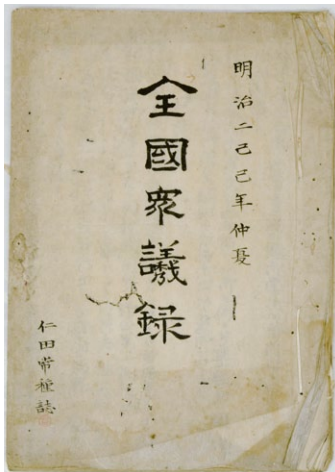 明治二己巳年仲夏
全國衆議録
仁田常種誌